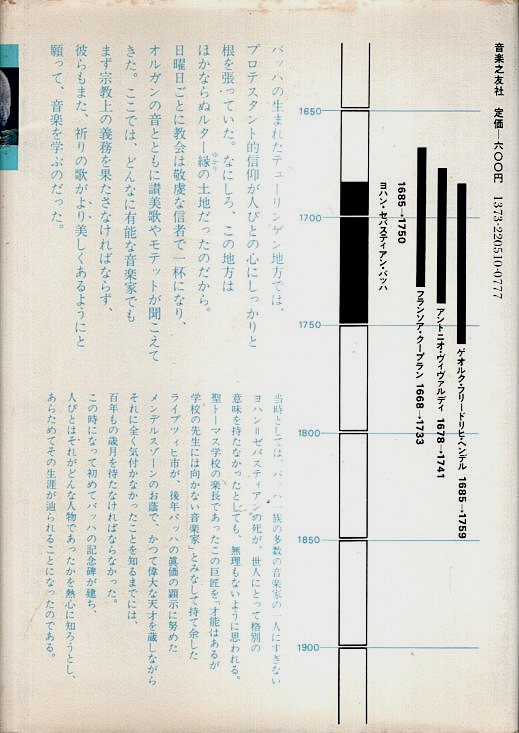 音楽之友社 定価―六〇〇円 1373-220510-0777
ゲオルク・フリードリヒ・ヘンデル 1685→1759
アントニオ・ヴィヴァルディ 1678→1741
フランソア・クープラン 1668→1733
1685→1750
ヨハン・セバスティアン・バッハ
1650
1700
1750
1800
1850
1900
バッハの生まれたテューリンゲン地方では、
プロテスタント的信仰が人びとの心にしっかりと
根を張っていた。なにしろ、この地方は
ほかならぬルター縁の土地だったのだから。
ゆかり
日曜日ごとに教会は敬虔な信者で一杯になり、
オルガンの音とともに讃美歌やモテットが聞こえて
きた。ここでは、どんなに有能な音楽家でも
まず宗教上の義務を果たさなければならず、
彼らもまた、祈りの歌がより美しくあるようにと
願って、音楽を学ぶのだった。
当時としては、バッハ一族の多数の音楽家の一人にすぎない
ヨハン＝ゼバスティアンの死が、世人にとって格別の
意味を持たなかったとしても、無理もないように思われる。
聖トーマス学校の楽長であったこの巨匠を「才能はあるが
学校の先生には向かない音楽家」とみなして持て余した
ライプツィヒ市が、後年バッハの眞価の顕示に努めた
メンデルスゾーンのお蔭で、かつて偉大な天才を蔵しながら
それに全く気付かなかったことを知るまでには、
百年もの歳月を待たなければならなかった。
この時になって初めてバッハの記念碑が建ち、
人びとはそれがどんな人物であったかを熱心に知ろうとし、
あらためてその生涯が辿られることになったのである。